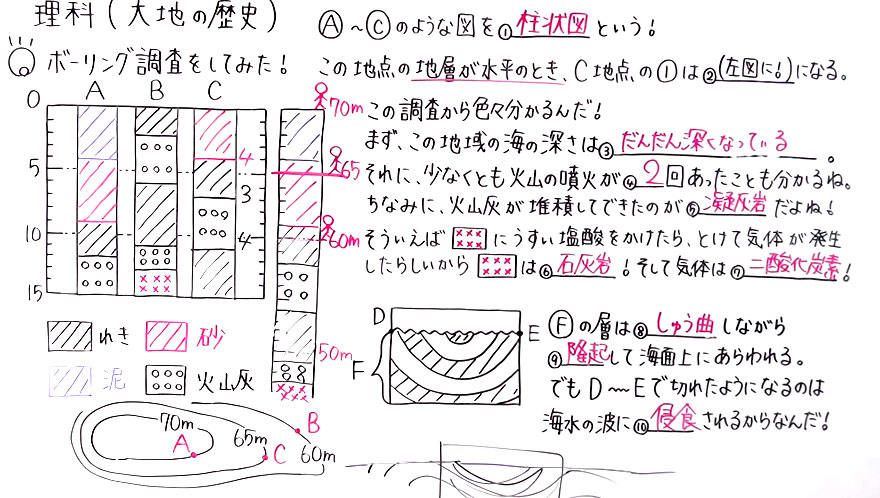 理科(大地の歴史)
ボーリング調査をしてみた!
A B C
0
5
10
15
4
3
4
70m
65
60m
50m
れき 砂
泥 火山灰
70m
65m
60m
A
C
B
Ⓐ~Ⓒのような図を①柱状図という!
この地点の地層が水平のとき、C地点の①は②(左図に!)になる。
この調査から色々分かるんだ!
まず、この地域の海の深さは③だんだん深くなっている。
それに、少なくとも火山の噴火が④2回あったことも分かるね。
ちなみに、火山灰が堆積してできたのが⑤凝灰岩だよね!
そういえば にうすい塩酸をかけたら、とけて気体が発生
したらしいから は⑥石灰岩!そして気体は⑦二酸化炭素!
D
E
F
Ⓕの層は⑧しゅう曲しながら
⑨隆起して海面上にあらわれる。
でもD~Eで切れたようになるのは
海水の波に⑩侵食されるからなんだ!